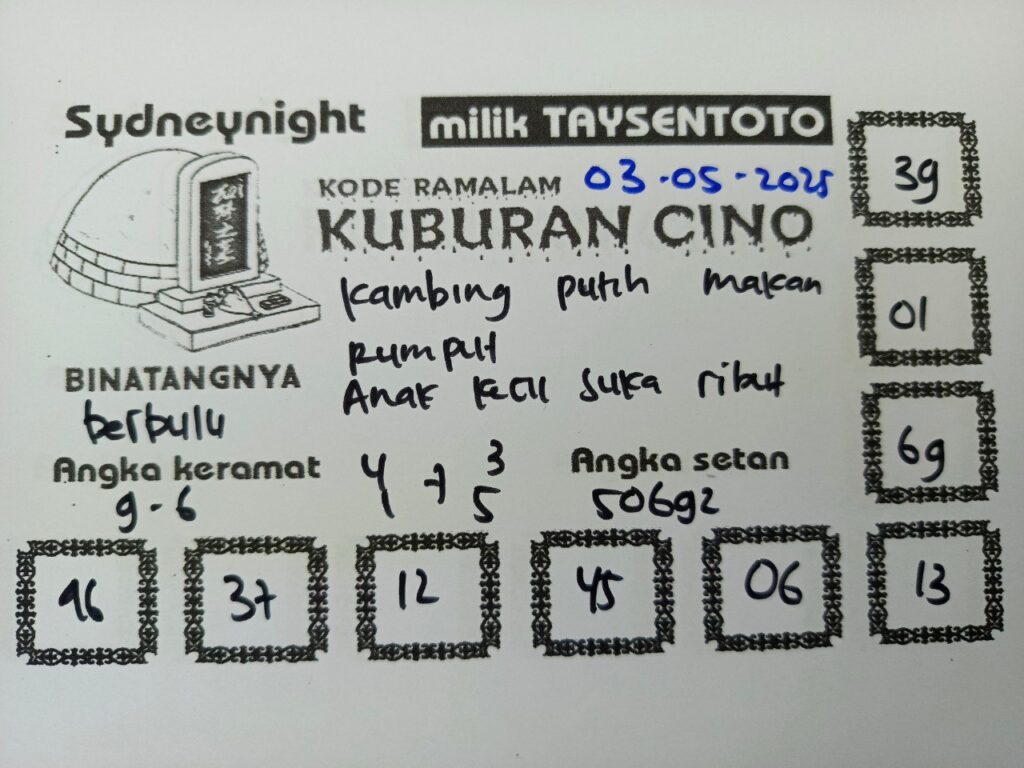 Sydneynight
milik TAYSENTOTO
KODE RAMALAM 03-05-2025
KUBURAN CINO
kambing putih makan
rumput
Anak kecil suka ribut
BINATANGNYA
berbulu
Angka keramat
9-6
4 + 3
5
Angka setan
50692
39
01
69
96
37
12
45
06
13